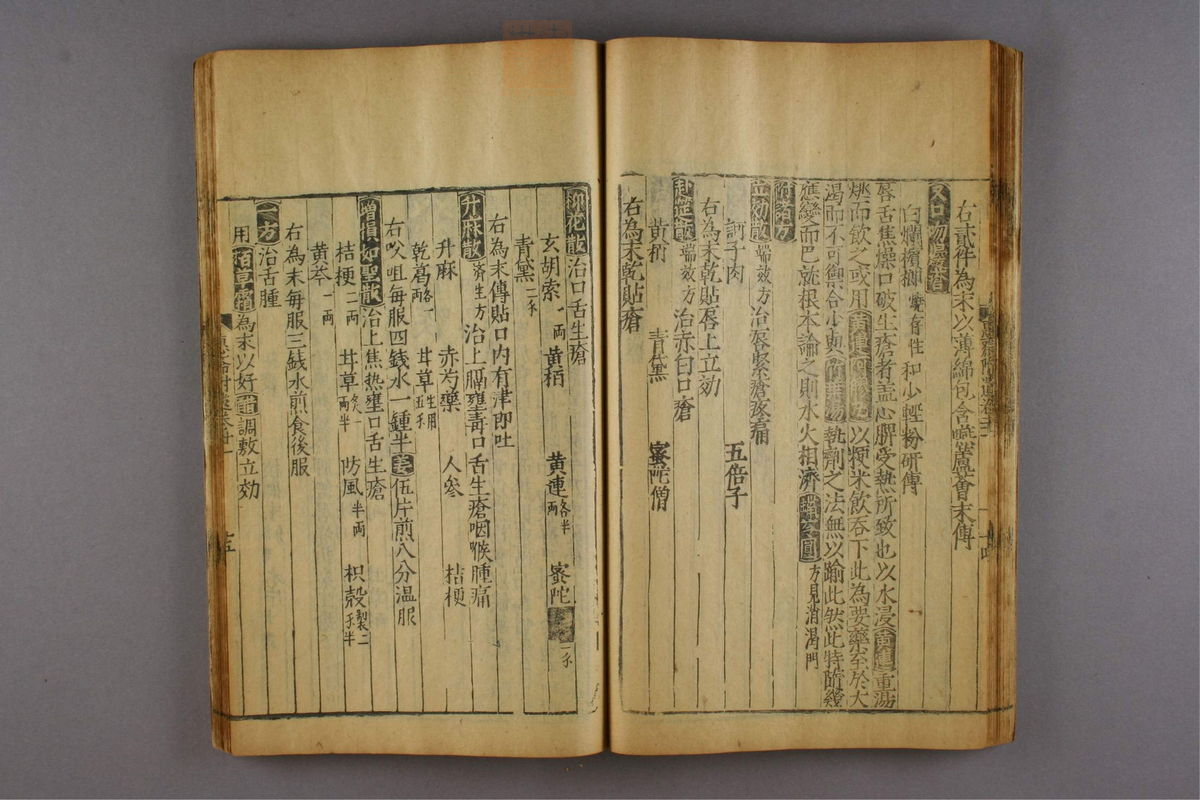 右貳件為末以薄綿包含嚥蘆薈末傅
又口吻瘡
白爛檳榔燒存性和少輕粉研傅
唇舌焦燥口破生瘡者盖心脾受熱所致也以水浸黃連重湯
燉而飲之或用以粳米飲吞下此為要藥至於大
渴而不可禦合少與竹葉湯執劑之法無以踰此然此特隨機
應變而已就根本論之則水火相濟方見消渴門
附諸方
立効散端效方治唇緊瘡疼痛
訶子肉 五倍子
右為末乾貼唇上立効
赴筵散端效方治赤白口瘡
黃栢 青黛 蜜陀僧
右為末乾貼瘡
柳花散治口舌生瘡
玄胡索一兩 黄栢 黄連各半兩 蜜陀一錢
青黛二錢
右為末傅貼口內有津即吐
升麻散濟生方治上膈壅毒口舌生瘡咽喉腫痛
升麻 赤芍藥 人參 桔梗
乾葛各一兩 甘草生用五錢
右㕮咀每服四錢水一鍾半姜伍片煎八分温服
增損如聖散治上焦热壅口舌生瘡
桔梗二兩 甘草炙一兩半 防風半兩 枳殼製二錢半
黄芩一兩
右為末每服三錢水煎食後服
一方治舌腫
用百草霜為末以好醋調敷立効